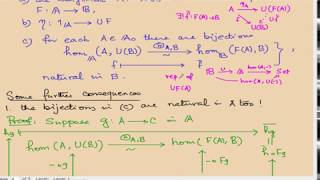 F : A → B
b) η : 1_A → UF
A η_A→ U(F(A))
∃! f̂ : F(A) → B
U(B)
c) for each A∈A there are bijections
hom_A(A, U(B)) —Φ_{A,B}→ hom_B(F(A), B)
natural in B.
rep. of UF(A)
B → Set
Some further consequences
1. the bijections in (c) are natural in A too!
Proof: Suppose g: A → C in A
hom(A, U(B)) —Φ_{A,B}→ hom(F(A), B)
−∘g
−∘Fg